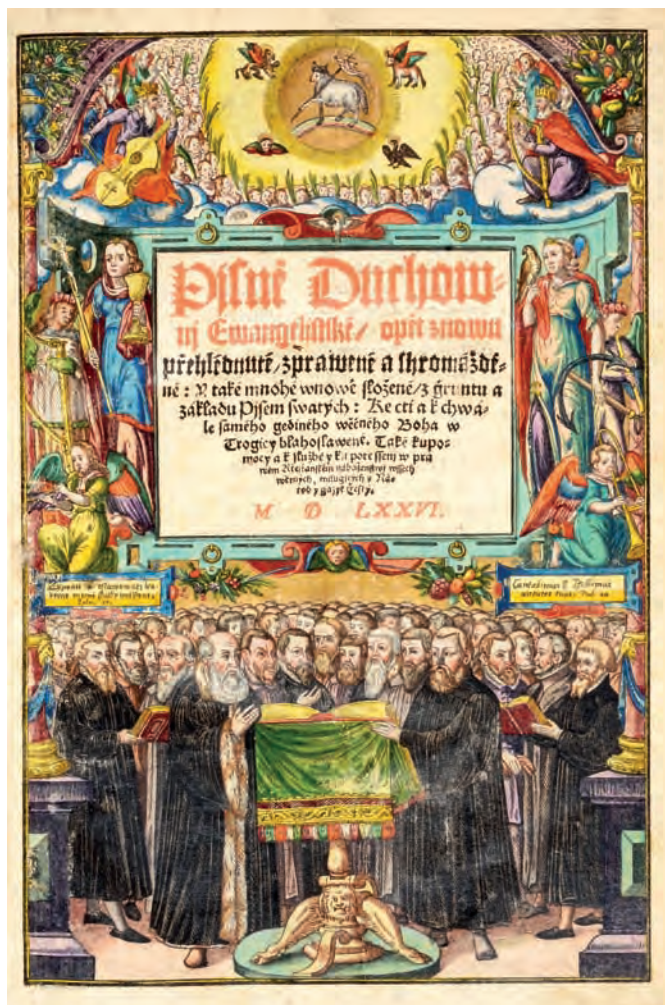 Pijsně Duchow-
nj Ewangelistské/ opět znowu
přehlédnuté/ zprawené a shromážďě-
né: Y také mnohé wnowě složené/ z gruntu a
základu Pijsem swatých: Ke cti a k chwá-
le samého gediného wěčného Boha w
Trogicy blahoslawené. Také ku pomo-
mocy a k službě y ku potěssenj w pra
wém Křestianském náboženstwj wssech
wěrných, milugjcých Ná-
rod y gazyk Čzeský.
M D LXXVI.
Cantabimus & Psallemus
virtutes tuas. Psal.